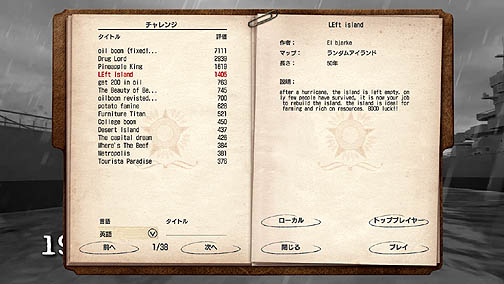 チャレンジ
タイトル 評価
oil boom (fixed!... 7111
Drug Lord 2939
Pineapple King 1619
LEft Island 1405
get 200 in oil 763
The Beauty of Be... 745
oilboon revisted... 700
potato famine 628
Furniture Titan 521
College boom 450
Desert Island 437
The capital dream 426
Where's The Beef 384
Metropolis 381
Tourista Paradise 376
言語 タイトル
英語
前へ 1/38 次へ
LEft island
作者： El bjerke
マップ： ランダムアイランド
長さ： 50年
説明：
after a hurricane, the island is left empty. on
ly few people have survived, it is now your job
to rebuild the island. the island is ideal for
farming and rich on resources. GOOD luck!!
ローカル トッププレイヤー
閉じる プレイ
19